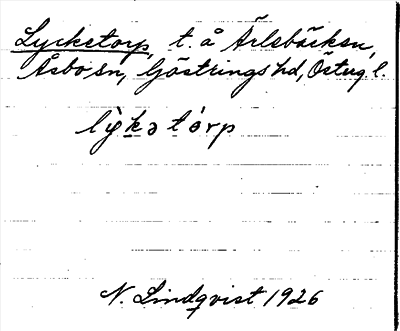 Lyckstorp, t. å Ärlebäcken,
Åsbo sn, Göstrings hd, Östergl.
lỳkə tórp
N. Lindqvist 1926